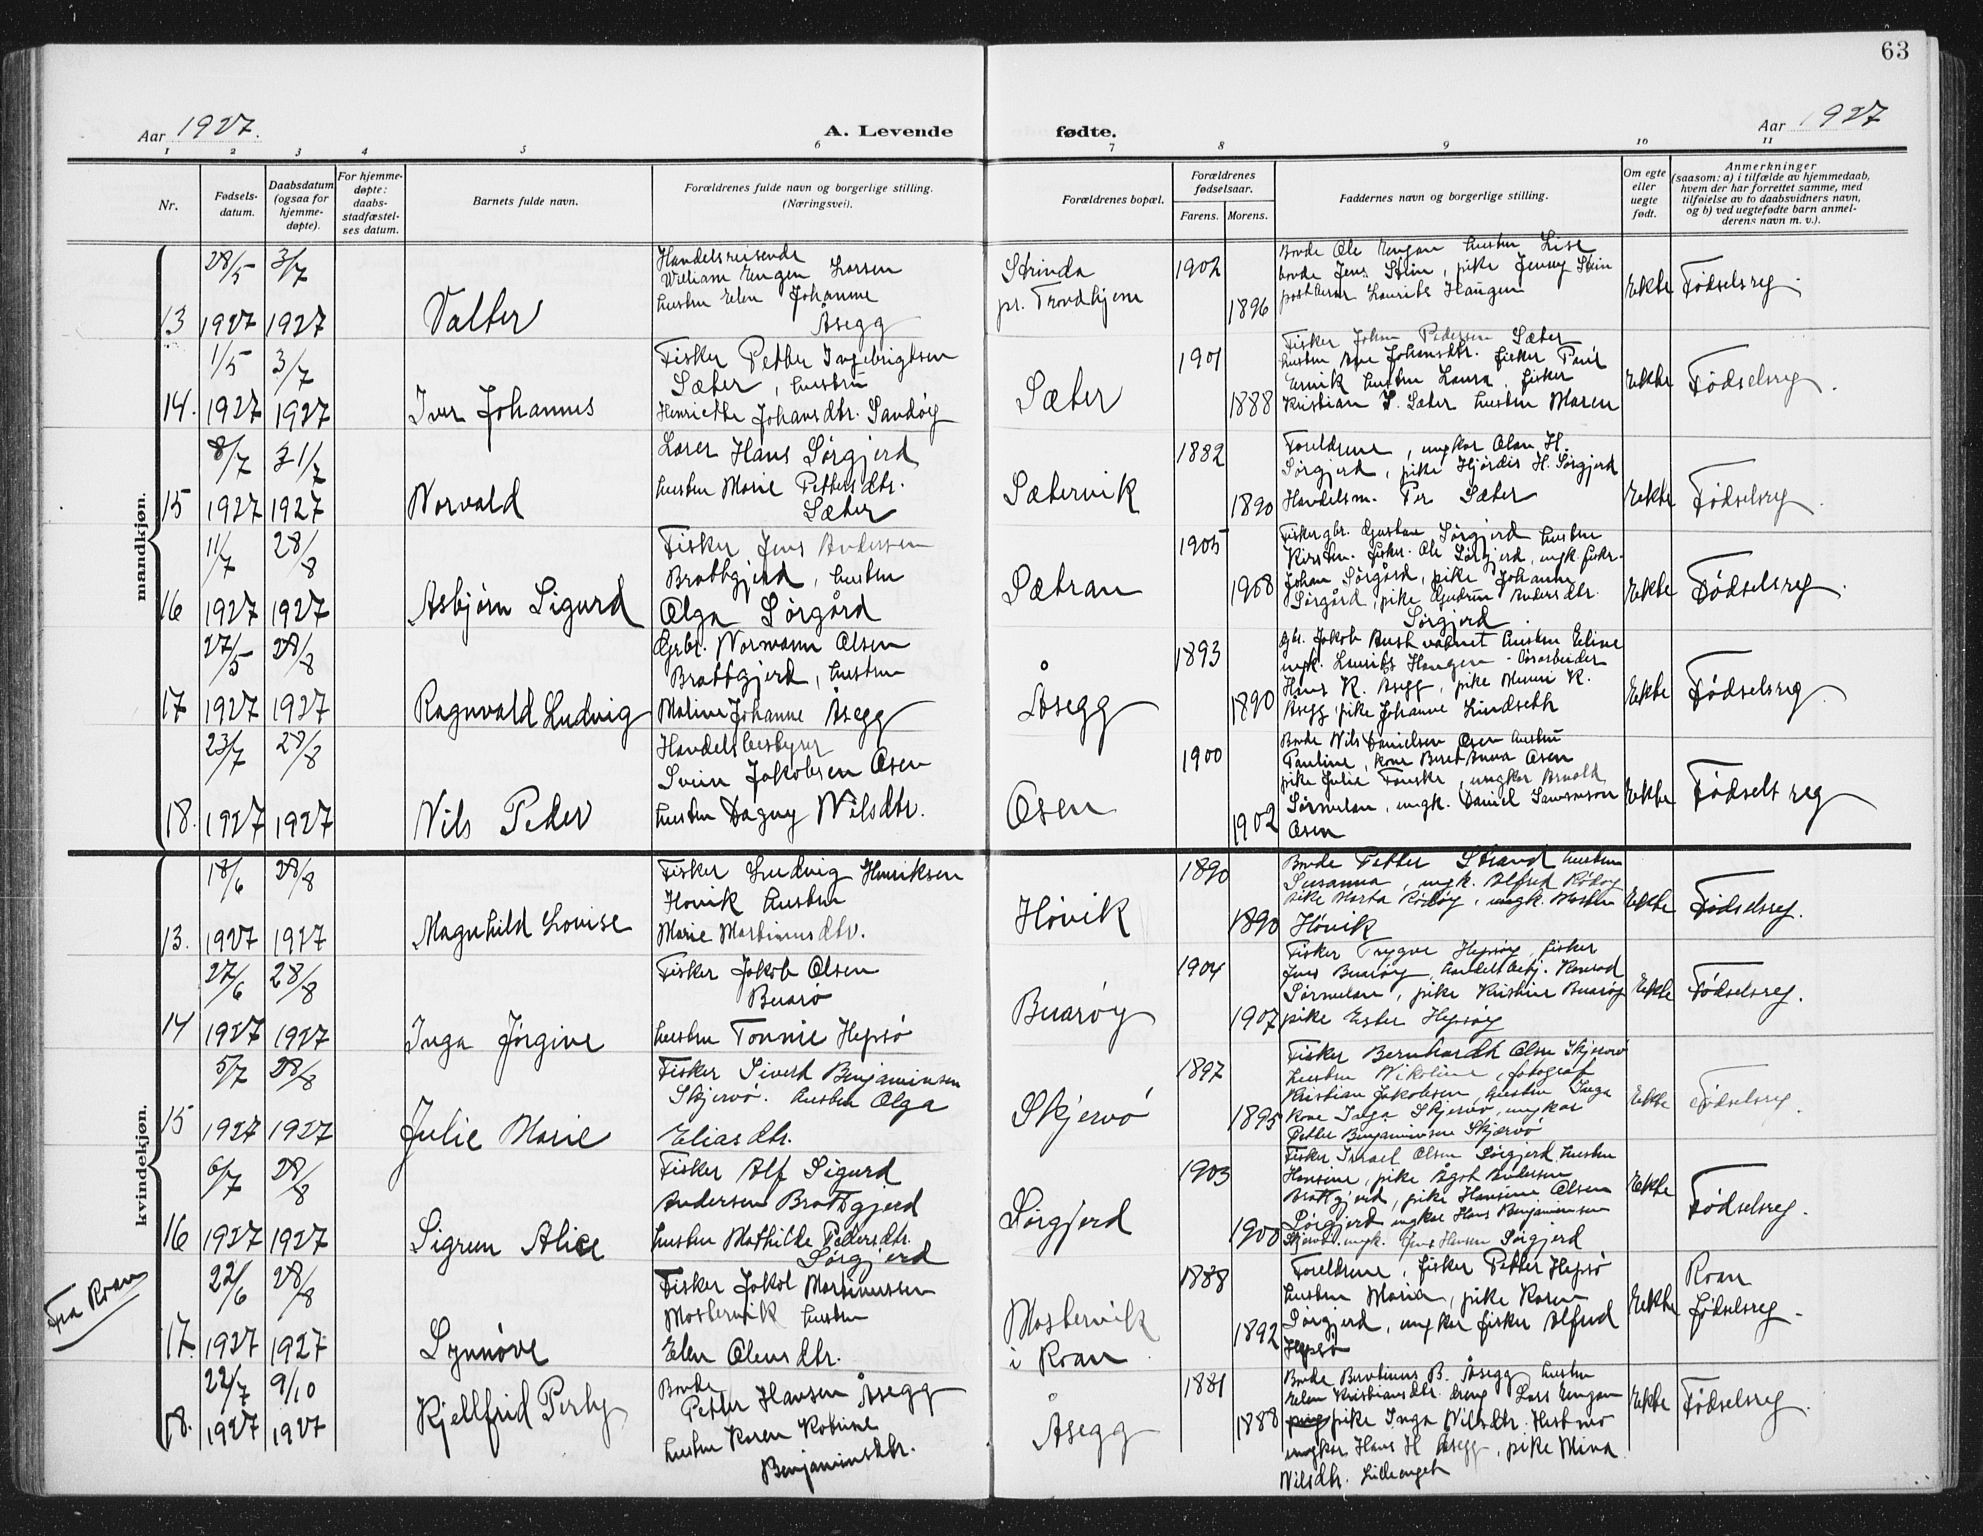 63
Aar 1927.
A. Levende fødte.
Aar 1927
1 2 3 4 5 6 7 8 9 10 11
Nr.
Fødsels-
datum.
Daabsdatum
(ogsaa for
hjemme-
døpte).
For hjemme-
døpte:
daabs-
stadfæstel-
ses datum.
Barnets fulde navn.
Forældrenes fulde navn og borgerlige stilling.
(Næringsvei).
Forældrenes bopæl.
Forældrenes
fødselsaar.
Farens. Morens.
Faddernes navn og borgerlige stilling.
Om egte
eller
uegte
født.
Anmerkninger
(saasom: a) i tilfælde av hjemmedaab,
hvem der har forrettet samme, med
tilføielse av to daabsvidners navn,
og b) ved uegtefødte barn anmel-
derens navn m. v.).
mandkjøn.
13
28/5
1927
3/7
1927
Valter
Handelsreisende
William Eugen Larsen
hustru Elen Johanne
Åsegg
Strinda
pr. Trondhjem
1902
1896
Bonde Ole Eengan hustru Lise
bonde Jens Stein, pike Jenny Stein
Laurits Haugen
Ekte
Fødselsreg.
14.
1/5
1927
3/7
1927
Iver Johannes
Fisker Petter Ingebrigtsen
Sæter, hustru
Henriette Johansdtr. Sandøy
Sæter
1901
1888
Fisker Johan Pedersen Sæter
hustru Ane Johansdtr. fisker Paul
Ervik hustru Laura, fisker
Kristian S. Sæter hustru Maren
Ekte
Fødselsreg.
15
8/7
1927
31/7
1927
Norvald
Lærer Hans Sørgjerd
hustru Marie Pettersdtr.
Sæter
Sætervik
1882
1890
Foreldrene, ungkar Olav H.
Sørgjerd, pike Hjørdis H. Sørgjerd
Handelsm. Per Sæter
Ekte
Fødselsreg.
16
11/7
1927
28/8
1927
Asbjørn Sigurd
Fisker Jens Andersen
Brattgjerd, hustru
Olga Sørgård
Sætran
1905
1908
Fisker gbr. Gustav Sørgjerd hustru
Kirsten. fisker. Ole Sørgjerd, ungk. fisker.
Johan Sørgård, pike Johanna
Sørgård, pike Gudrun Andersdtr.
Sørgjerd.
Ekte
Fødselsreg.
17
27/5
1927
28/8
1927
Ragnvald Ludvig
Grbr. Normann Olsen
Brattgjerd, hustru
Maline Johanne Åsegg
Åsegg
1893
1890
Gbr. Jakob Austvatnet hustru Eline
ungk. Laurits Haugen
Hans K. Åsegg, pike K.
Åsegg pike Johanne Lindseth
Ekte
Fødselsreg.
18.
23/7
1927
28/8
1927
Nils Peder
Handelsbestyrer
Svein Jakobsen Osen
hustru Dagny Nilsdtr.
Osen
1900
1902
Bonde Nils Danielsen Osen hustru
Pauline, kone Beret Anna Osen
pike Julie Fauske, ungkar Arnold
Sørmelan, ungk. Daniel
Osen
Ekte
Fødselsreg
kvindekjøn.
13.
18/6
1927
28/8
1927
Magnhild Lovise
Fisker Ludvig Henriksen
Høvik hustru
Marie Martinusdtr.
Høvik
1890
1890
Bonde Petter Strand hustru
Susanna, ungk. Alfred Rødøy
pike Marta Rødøy, ungk.
Høvik
Ekte
Fødselsreg.
14
27/6
1927
28/8
1927
Inga Jørgine
Fisker Jakob Olsen
Buarø
hustru Tonnie Hepsø
Buarøy
1904
1907
Fisker Trygve Hepsøy, fisker
Jens Buarøy, handelsbetj. Konrad
Sørmelan, pike Kristine Buarøy
pike Ester Hepsøy
Ekte
Fødselsreg.
15
5/7
1927
28/8
1927
Julie Marie
Fisker Sivert Benjaminsen
Skjervø. hustru Olga
Eliasdtr.
Skjervø
1897
1895
Fisker Bernhardt Olsen Skjervø
hustru Nikoline, fotograf
Kristian Jakobsen, hustru Inga
kone Inga Skjervø, ungkar
Petter Benjaminsen Skjærvø
Ekte
Fødselsreg.
16
6/7
1927
28/8
1927
Sigrun Alice
Fisker Alf Sigurd
Andersen Brattgjerd
hustru Mathilde Pedersdtr.
Sørgjerd
Sørgjerd
1903
1900
Fisker Israel Olsen Sørgjerd hustru
Hansine, pike Ågot Andersen
Brattgjerd, pike Hansine Olsen
Sørgjerd ungkar Hans Benjaminsen
Skjervø. ungk. Jens Hansen Sørgjerd
Ekte
Fødselsreg.
Fra Roan
17.
22/6
1927
28/8
1927
Synnøve
Fisker Jakob Martinussen
Mostervik hustru
Elen Olensdtr.
Mostervik
i Roan
1888
1892
Foreldrene, fisker Petter Hepsø
hustru Maria, pike Karen
Sørgjerd, ungkar fisker Alfred
Hepsø
Ekte
Roan
fødselsreg.
18.
22/7
1927
9/10
1927
Kjellfrid Perly
Bonde
Petter Hansen Åsegg
hustru Karen Katrine
Benjaminsdtr.
Åsegg
1881
1888
Bonde Berntinus B. Åsegg hustru
Elen Kristiansdtr. dreng Lars Eengan
pike Inga Nilsdtr. Hestmo
ungkar Hans H. Åsegg, pike Mina
Nilsdtr. Lilleenget
Ekte
Fødselsreg.